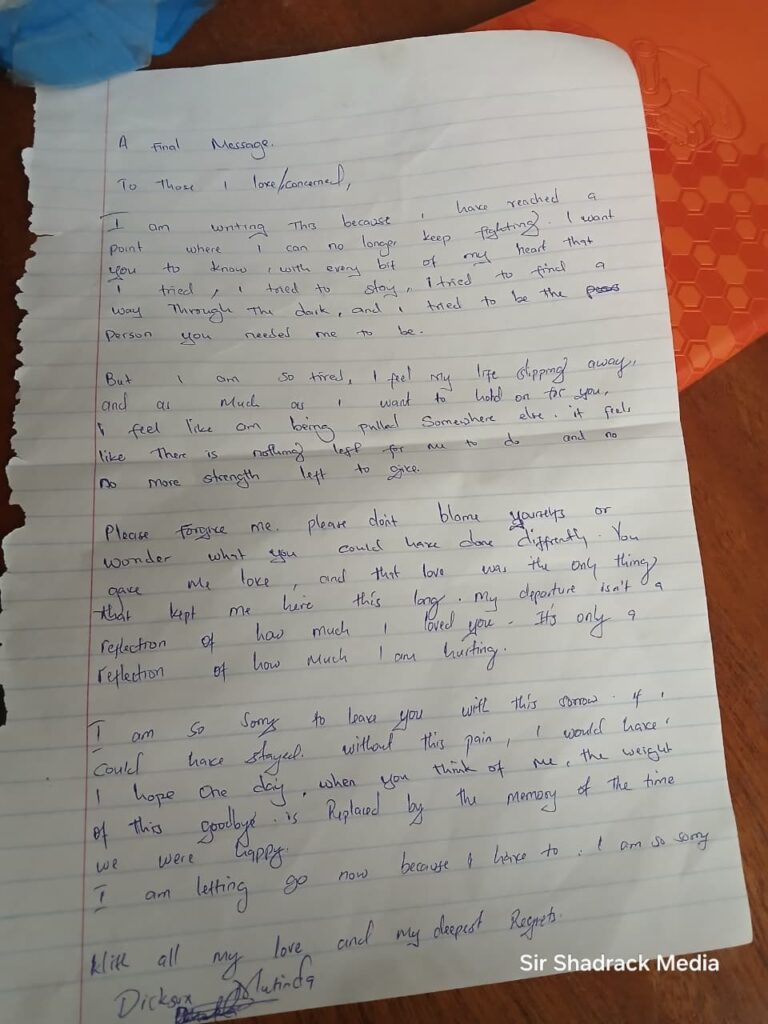 A Final Message.
To Those I love/concerned,
I am writing This because i have reached a
point where I can no longer keep fighting. I want
you to know, with every bit of my heart that
I tried, i tried to stay, i tried to find a
way Through The dark, and i tried to be the
person you needed me to be.
But I am so tired, I feel my life slipping away,
and as much as I want to hold on for you,
i feel like am being pulled Somewhere else. it feels
like There is nothing left for me to do and no
no more strength left to give.
Please Forgive me. please don't blame yourselfs or
wonder what you could have done differently. You
gave me love, and that love was the only thing
that kept me here this long. My departure isn't a
reflection of how much I loved you. It's only a
reflection of how much I am hurting.
I am so sorry to leave you with this sorrow. if i
could have stayed. without this pain, I would have!
I hope One day, when you think of me, the weight
of this goodbye. is Replaced by the memory of The time
we were happy.
I am letting go now because I have to. I am so sorry
With all my love and my deepest Regrets.
Dickson Mutinda
Sir Shadrack Media